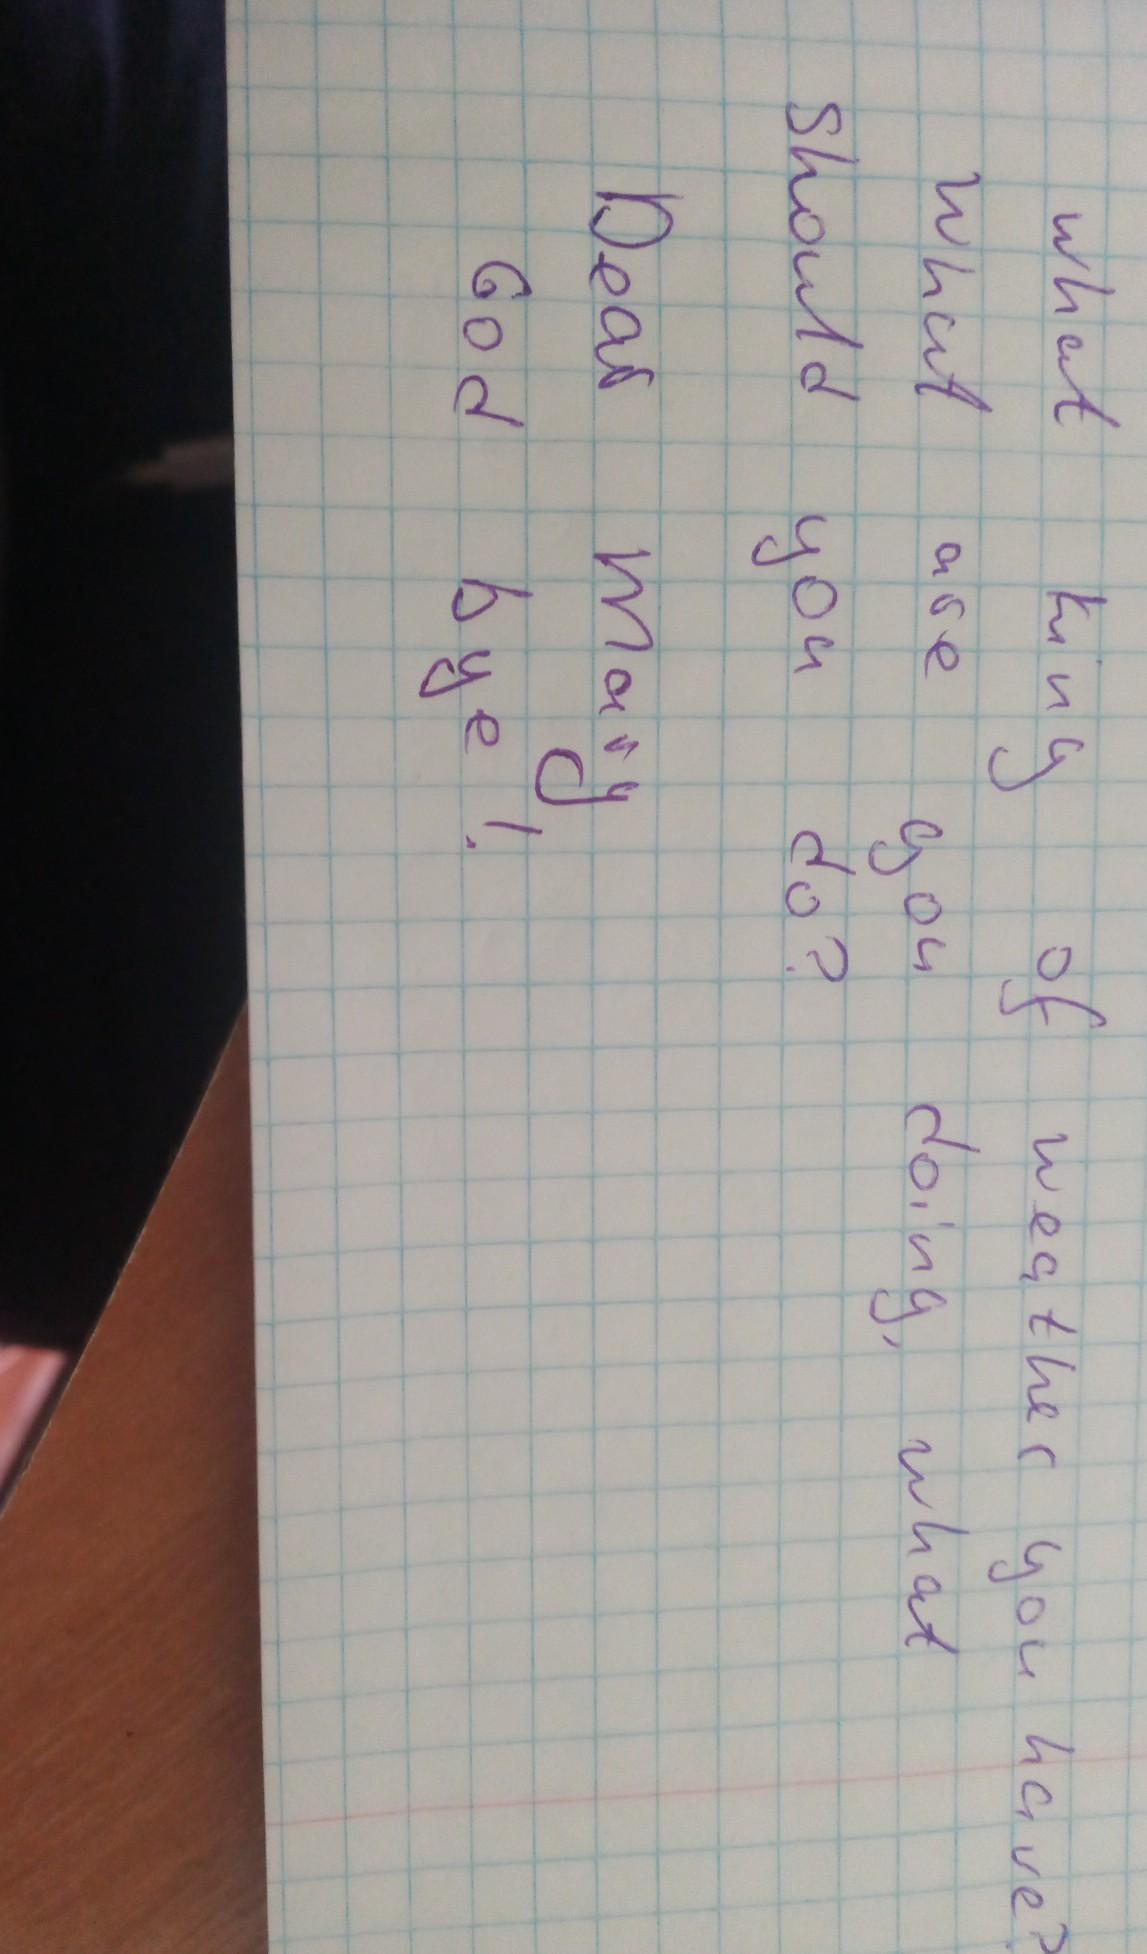 what king of weather you have?
What are you doing, what
should you do?
Dear Mary
God bye!